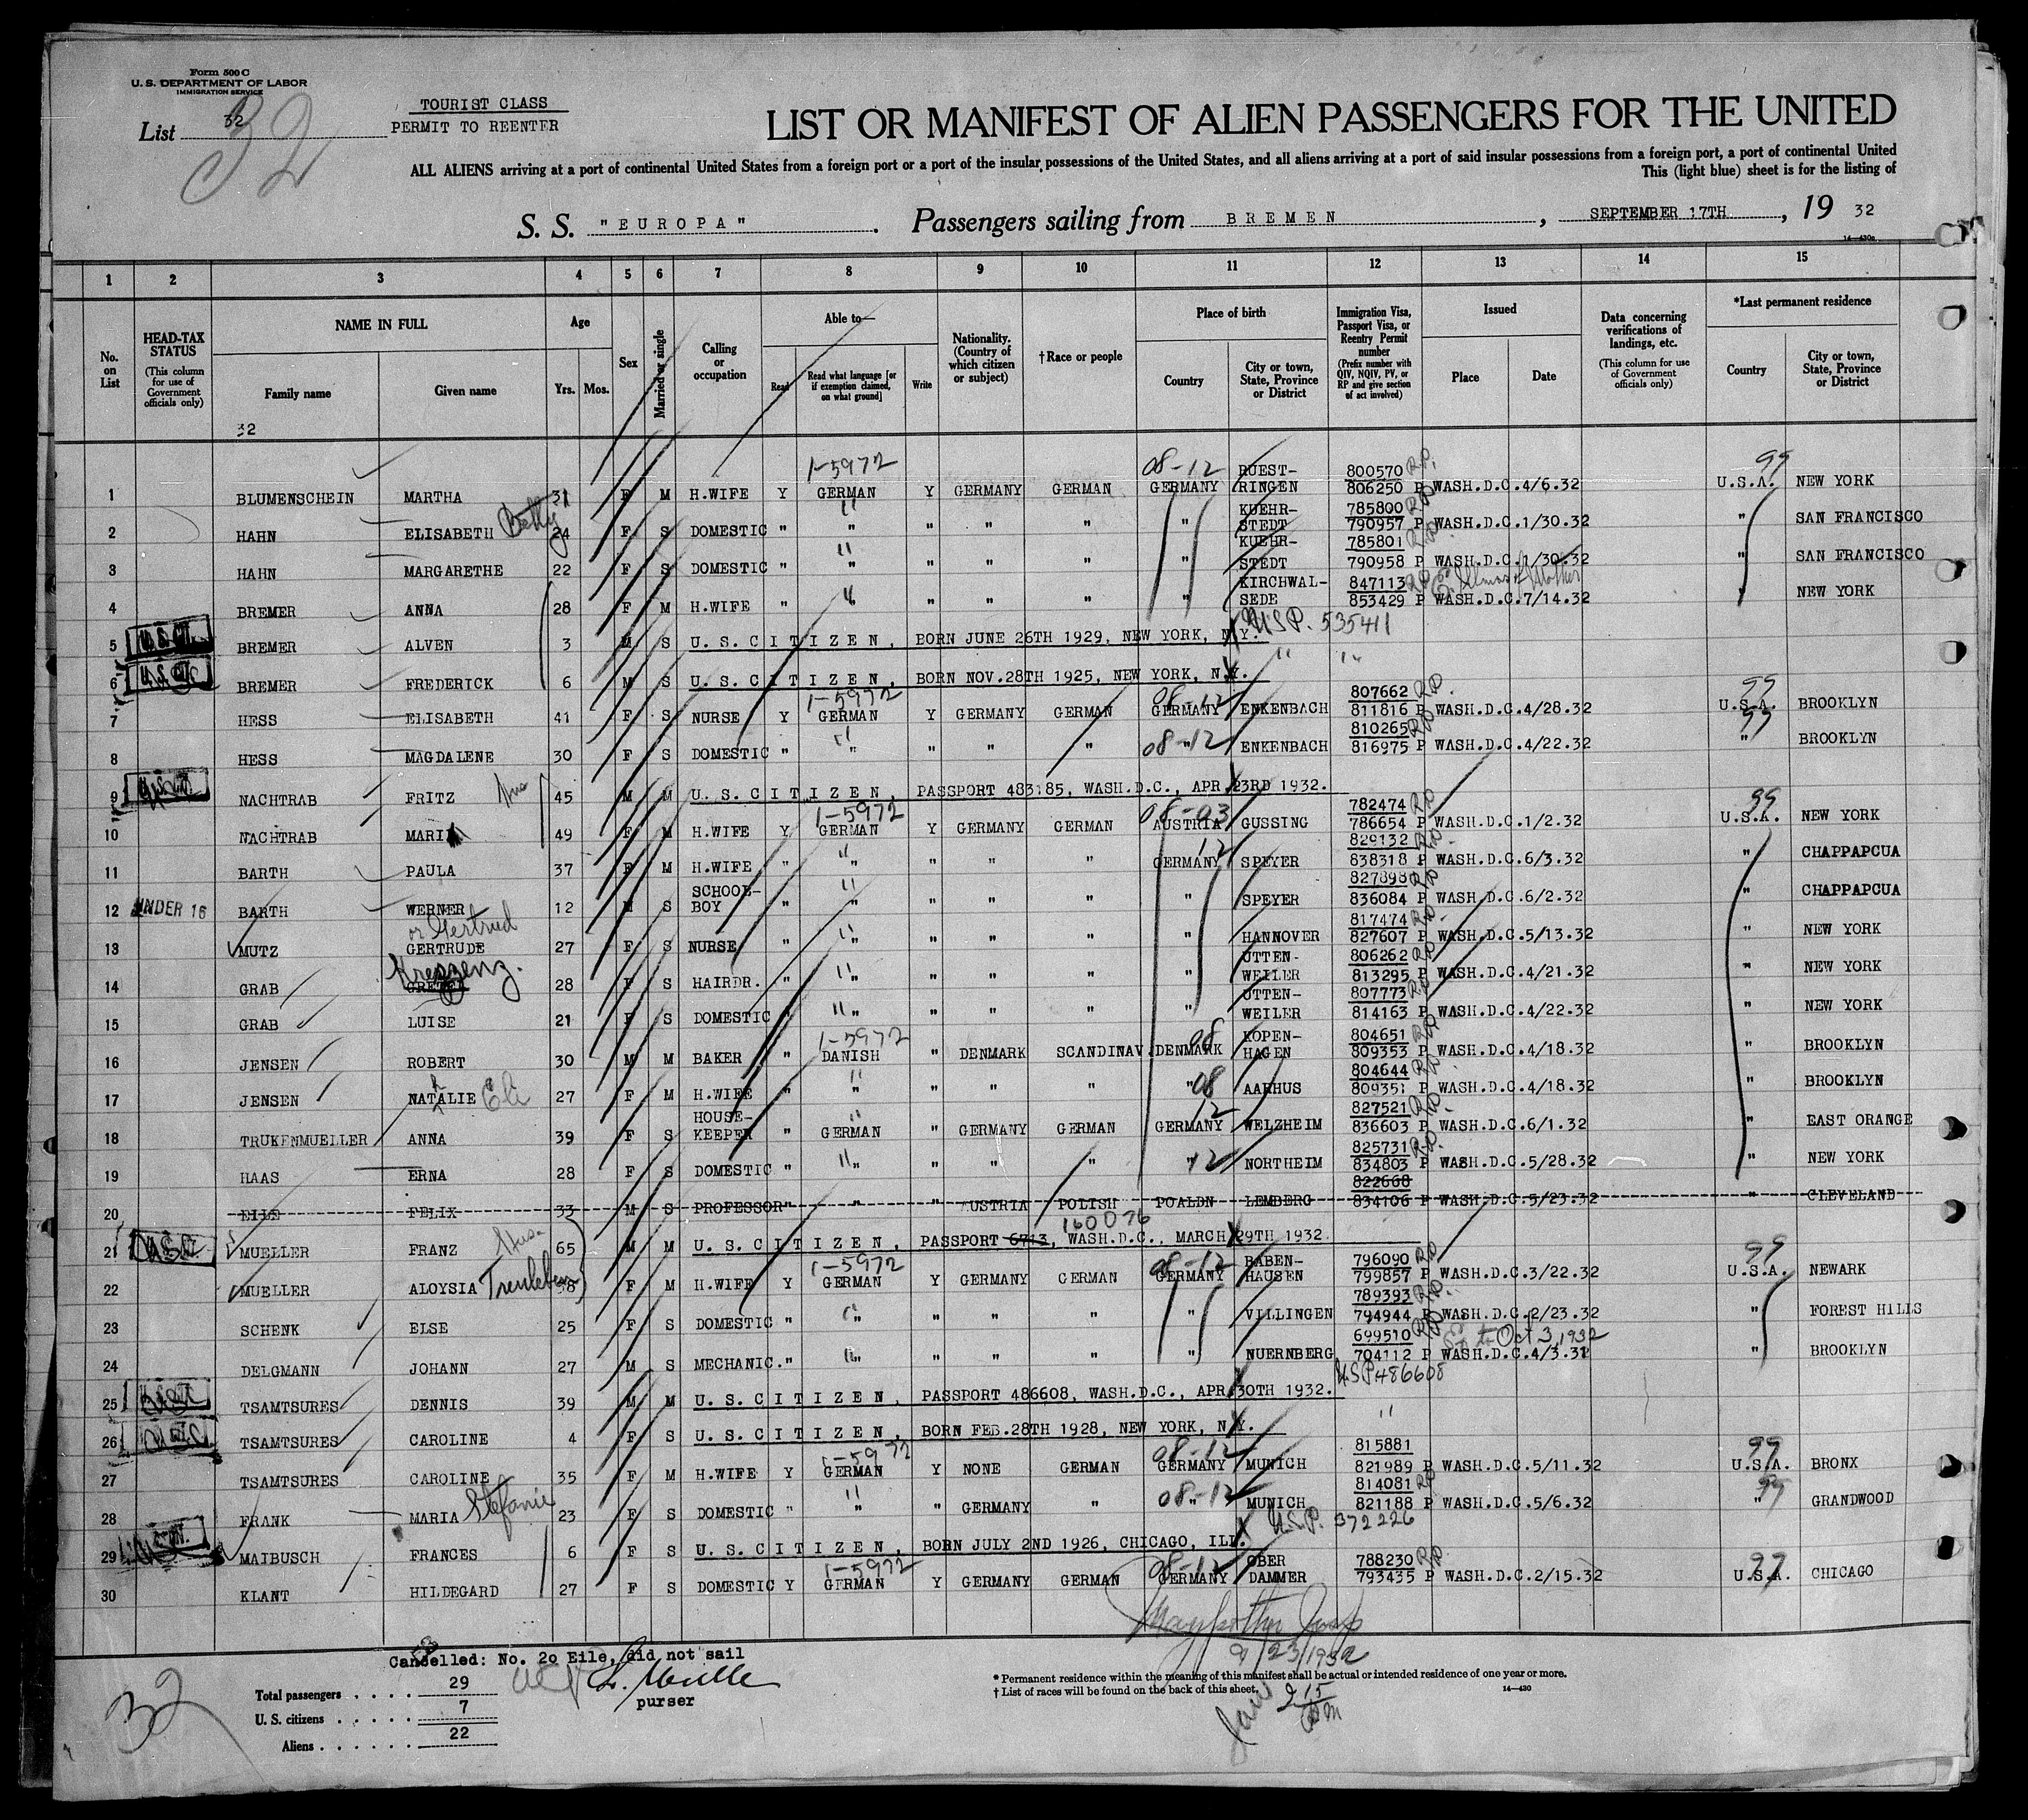 Form 500 C
U. S. DEPARTMENT OF LABOR
IMMIGRATION SERVICE
List 32
32
TOURIST CLASS
PERMIT TO REENTER
LIST OR MANIFEST OF ALIEN PASSENGERS FOR THE UNITED
ALL ALIENS arriving at a port of continental United States from a foreign port or a port of the insular possessions of the United States, and all aliens arriving at a port of said insular possessions from a foreign port, a port of continental United
This (light blue) sheet is for the listing of
S. S. "EUROPA". Passengers sailing from BREMEN, SEPTEMBER 17TH, 19 32
14—430a
1 2 3 4 5 6 7 8 9 10 11 12 13 14 15
No. on List
HEAD-TAX STATUS (This column for use of Government officials only)
NAME IN FULL
Family name
Given name
Age
Yrs. Mos.
Sex
Married or single
Calling or occupation
Able to—
Read
Read what language [or if exemption claimed, on what ground]
Write
Nationality. (Country of which citizen or subject)
†Race or people
Place of birth
Country
City or town, State, Province or District
Immigration Visa, Passport Visa, or Reentry Permit number (Prefix number with QIV, NQIV, PV, or RP and give section of act involved)
Issued
Place
Date
Data concerning verifications of landings, etc. (This column for use of Government officials only)
*Last permanent residence
Country
City or town, State, Province or District
32
1-5972 08-12 99
1 BLUMENSCHEIN MARTHA 31 F M H.WIFE Y GERMAN Y GERMANY GERMAN GERMANY RUEST-RINGEN 800570 806250 P WASH.D.C. 4/6.32 U.S.A. NEW YORK
2 HAHN ELISABETH Betty 24 F S DOMESTIC " " " " " " KUEHR-STEDT 785800 790957 P WASH.D.C. 1/30.32 " SAN FRANCISCO
3 HAHN MARGARETHE 22 F S DOMESTIC " " " " " " KUEHR-STEDT 785801 790958 P WASH.D.C. 1/30.32 " SAN FRANCISCO
4 BREMER ANNA 28 F M H.WIFE " " " " " " KIRCHWAL-SEDE 847113 853429 P WASH.D.C. 7/14.32 " NEW YORK
5 BREMER ALVEN 3 M S U.S.CITIZEN, BORN JUNE 26TH 1929, NEW YORK, N.Y. U.S.P. 535411
6 BREMER FREDERICK 6 M S U.S.CITIZEN, BORN NOV.28TH 1925, NEW YORK, N.Y. " "
1-5972 08-12 99
7 HESS ELISABETH 41 F S NURSE Y GERMAN Y GERMANY GERMAN GERMANY ENKENBACH 807662 811816 P WASH.D.C. 4/28.32 U.S.A. BROOKLYN
8 HESS MAGDALENE 30 F S DOMESTIC " " " " " 08-12 " ENKENBACH 810265 816975 P WASH.D.C. 4/22.32 " BROOKLYN
9 NACHTRAB FRITZ 45 M M U.S.CITIZEN, PASSPORT 483185, WASH.D.C., APR.23RD 1932.
1-5972 08-03 99
10 NACHTRAB MARI 49 F M H.WIFE Y GERMAN Y GERMANY GERMAN AUSTRIA GUSSING 782474 786654 P WASH.D.C. 1/2.32 U.S.A. NEW YORK
11 BARTH PAULA 37 F M H.WIFE " " " " " 12 GERMANY SPEYER 829132 838318 P WASH.D.C. 6/3.32 " CHAPPAPCUA
12 UNDER 16 BARTH WERNER 12 M S SCHOOL-BOY " " " " " " SPEYER 827898 836084 P WASH.D.C. 6/2.32 " CHAPPAPCUA
13 MUTZ or Gertrud GERTRUDE 27 F S NURSE " " " " " " HANNOVER 817474 827607 P WASH.D.C. 5/13.32 " NEW YORK
14 GRAB Kreszenz. GRETEL 28 F S HAIRDR. " " " " " " UTTEN-WEILER 806262 813295 P WASH.D.C. 4/21.32 " NEW YORK
15 GRAB LUISE 21 F S DOMESTIC " " " " " " UTTEN-WEILER 807773 814163 P WASH.D.C. 4/22.32 " NEW YORK
1-5972 08
16 JENSEN ROBERT 30 M M BAKER " DANISH " DENMARK SCANDINAV. DENMARK KOPEN-HAGEN 804651 809353 P WASH.D.C. 4/18.32 " BROOKLYN
17 JENSEN NATALIE 27 F M H.WIFE " " " " " 08 " AARHUS 804644 809351 P WASH.D.C. 4/18.32 " BROOKLYN
18 TRUKENMUELLER ANNA 39 F S HOUSE-KEEPER " GERMAN " GERMANY GERMAN 12 GERMANY WELZHEIM 827521 836603 P WASH.D.C. 6/1.32 " EAST ORANGE
19 HAAS ERNA 28 F S DOMESTIC " " " " " 12 " NORTHEIM 825731 834803 P WASH.D.C. 5/28.32 " NEW YORK
20 EILE FELIX 33 M S PROFESSOR " " " AUSTRIA POLISH POALDN LEMBERG 822668 834106 P WASH.D.C. 5/23.32 " CLEVELAND
21 MUELLER FRANZ 65 M M U.S.CITIZEN, PASSPORT 6713, 160076 WASH.D.C., MARCH 29TH 1932.
1-5972 08-12 99
22 MUELLER ALOYSIA 58 F M H.WIFE Y GERMAN Y GERMANY GERMAN GERMANY BABEN-HAUSEN 796090 799857 P WASH.D.C. 3/22.32 U.S.A. NEWARK
23 SCHENK ELSE 25 F S DOMESTIC " " " " " " VILLINGEN 789393 794944 P WASH.D.C. 2/23.32 " FOREST HILLS
24 DELGMANN JOHANN 27 M S MECHANIC. " " " " " " NUERNBERG 699510 704112 P WASH.D.C. 4/3.31 Oct 3, 1932 " BROOKLYN
25 TSAMTSURES DENNIS 39 M M U.S.CITIZEN, PASSPORT 486608, WASH.D.C., APR.30TH 1932. U.S.P. 486608
26 TSAMTSURES CAROLINE 4 F S U.S.CITIZEN, BORN FEB.28TH 1928, NEW YORK, N.Y. "
1-5972 08-12 99
27 TSAMTSURES CAROLINE 35 F M H.WIFE Y GERMAN Y NONE GERMAN GERMANY MUNICH 815881 821989 P WASH.D.C. 5/11.32 U.S.A. BRONX
28 FRANK MARIA Stefanie 23 F S DOMESTIC " " " GERMANY " 08-12 " MUNICH 814081 821188 P WASH.D.C. 5/6.32 99 " GRANDWOOD
29 MAIBUSCH FRANCES 6 F S U.S.CITIZEN, BORN JULY 2ND 1926, CHICAGO, ILL. U.S.P. 372226
1-5972 08-12 99
30 KLANT HILDEGARD 27 F S DOMESTIC Y GERMAN Y GERMANY GERMAN GERMANY OBER DAMMER 788230 793435 P WASH.D.C. 2/15.32 U.S.A. CHICAGO
9/23/1932
Cancelled: No. 20 Eile, did not sail
purser
Total passengers . . . . 29
U. S. citizens . . . . . 7
Aliens . . . . . . 22
32
* Permanent residence within the meaning of this manifest shall be actual or intended residence of one year or more.
† List of races will be found on the back of this sheet.
14—430